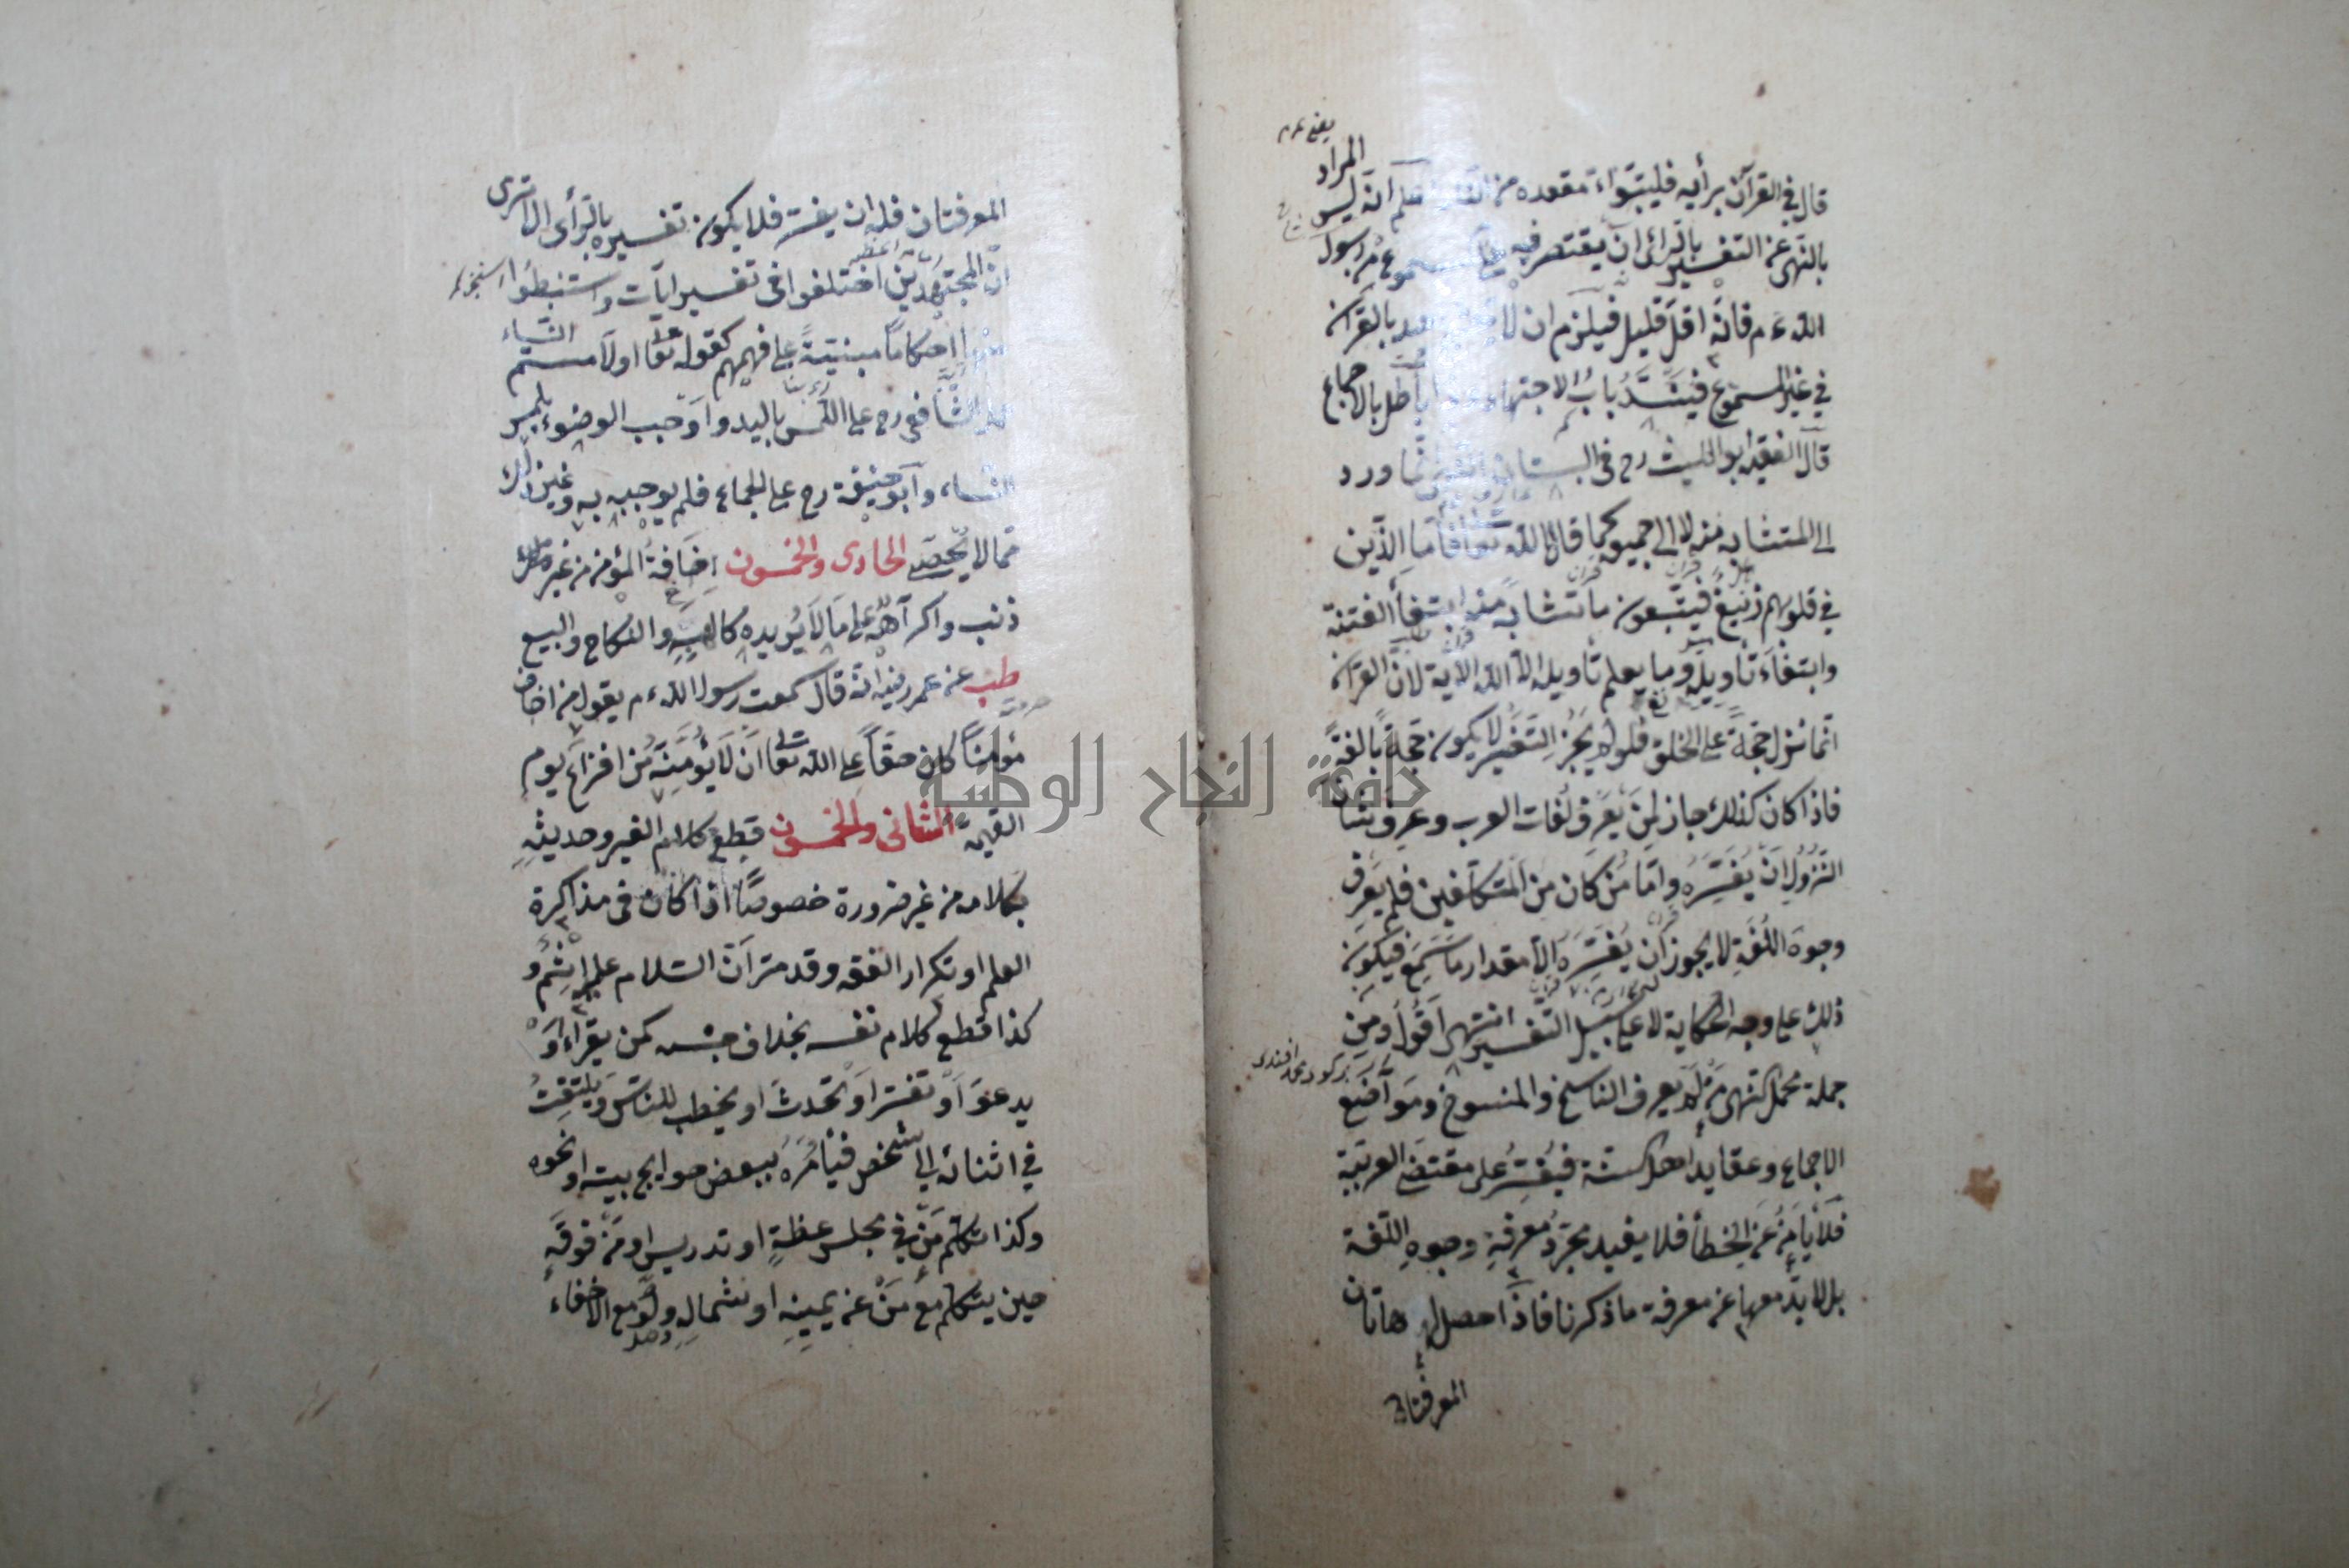 يعني عدم
المراد
قال في القرآن برأيه فليتبوأ مقعده من النار اعلم انه ليس
بالنهي عن التفسير بالرأى ان يقتصر فيه على المسموع من رسول
الله ءم فانه اقل قليل فيلزم ان لا بالقرآن
في غير المسموع فينسدّ باب الاجتهاد باطل بالاجماع
قال الفقيه ابو الليث رح في البستان النهي انما ورد
الى المتشابه منه لا الى جميعه كما قال الله تعا فاما الذين
في قلوبهم زيغ فيتبعون ما تشابه منه ابتغاء الفتنة
وابتغاء تأويله وما يعلم تأويله الا الله الاية لان القرآن
انما نزل حجة على الخلق فلو لم يجز التفسير لا يكون حجة بالغة
فاذا كان كذلك جاز لمن يعرف لغات العرب وعرف شأن
النزول ان يفسره واما من كان من المتكلفين فلم يعرف
وجوه اللغة لا يجوز ان يفسره الا مقدار ما سمع فيكون
ذلك على وجه الحكاية لا على سبيل التفسير انتهى اقول ومن
بركوي افندي
جملة محمل النهي من لم يعرف الناسخ والمنسوخ ومواضع
الاجماع وعقايد اهل السنة فيفسر على مقتضى العربية
فلا يأمن عن الخطأ فلا يفيد مجرد معرفة وجوه اللغة
بل لا بدّ معها عن معرفة ما ذكرنا فاذا حصل له هاتان
المعرفتان
المعرفتان فله ان يفسر فلا يكون تفسيره بالرأى الا ترى
ان المجتهدين اختلفوا في تفسير ايآت واستنبطوا
منها احكاما مبنية على فهمهم كقوله تعا او لامستم النساء
حمل الشافعي رح على اللمس باليد واوجب الوضوء بلمس
النساء وابو حنيفة رح على الجماع فلم يوجبه به وغير ذلك
مما لا يحصى الحادى والخمسون اخافة المؤمن من غير
ذنب واكراهه على ما لا يريده كالهبة والنكاح والبيع
طب عن عمر رضيه انه قال سمعت رسول الله ءم يقول من اخاف
مؤمنا كان حقا على الله تعا ان لا يؤمنه من افزاع يوم
القيمة الثانى والخمسون قطع كلام الغير وحديثه
بكلامه من غير ضرورة خصوصا اذا كان في مذاكرة
العلم او تكرار الفقه وقد مر ان السلام عليه اثم و
كذا قطع كلام نفسه بخلاف جنسه كمن يقرأ او
يدعو او تفسر او تحدث او يخطب للناس ويلتفت
في اثنائه الى شخص فيأمره ببعض حوايج بيته او نحوه
وكذا تكلم من في مجلس عظة او تدريس او من فوقه
حين يتكلم مع من عن يمينه او شماله ولو مع الاخفاء
جامعة النجاح الوطنية